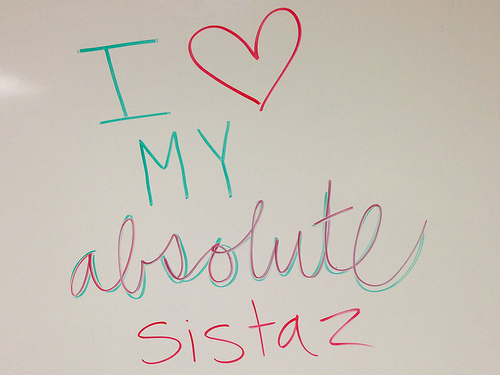 I ♡
MY
absolute
sistaz